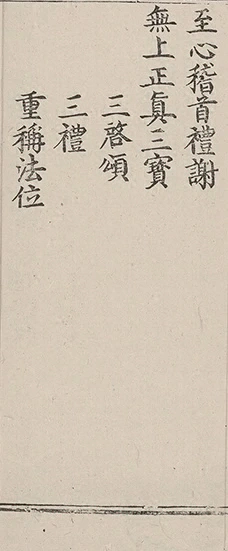 至心稽首禮謝
無上正眞三寳
三啓頌
三禮
重稱法位